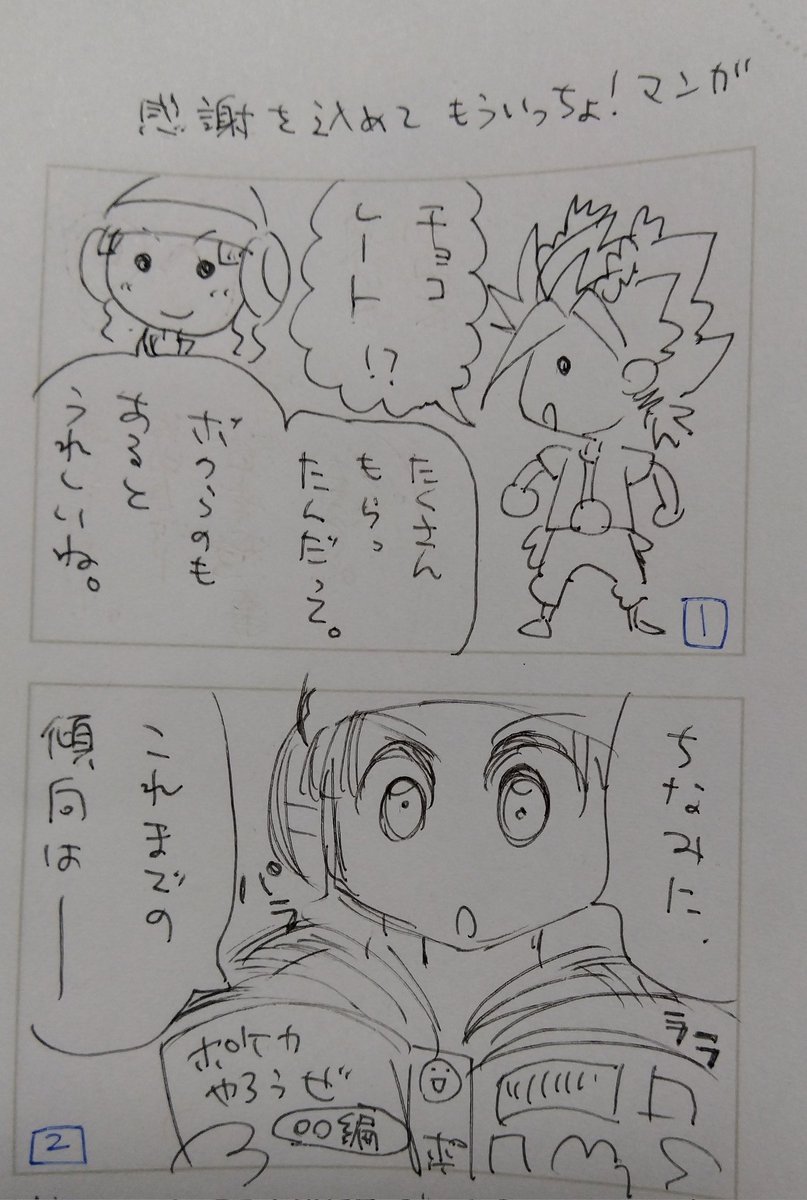 感謝を込めて もういっちょ!マンガ
チョコ
レート!?
たくさん
もらっ
たんだって。
ボクらのも
あると
うれしいね。
1
ちなみに、
これまでの
傾向は――
パラ
ララ
ポケカ
やろうぜ
〇〇編
2